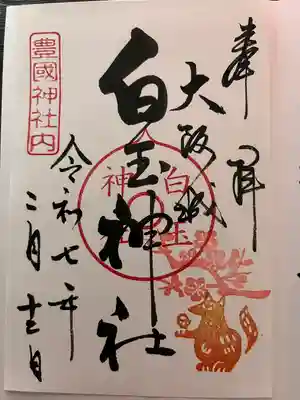 奉拝
大阪城
白玉神社
白玉
神社
豊國神社内
令和七年
二月十三日